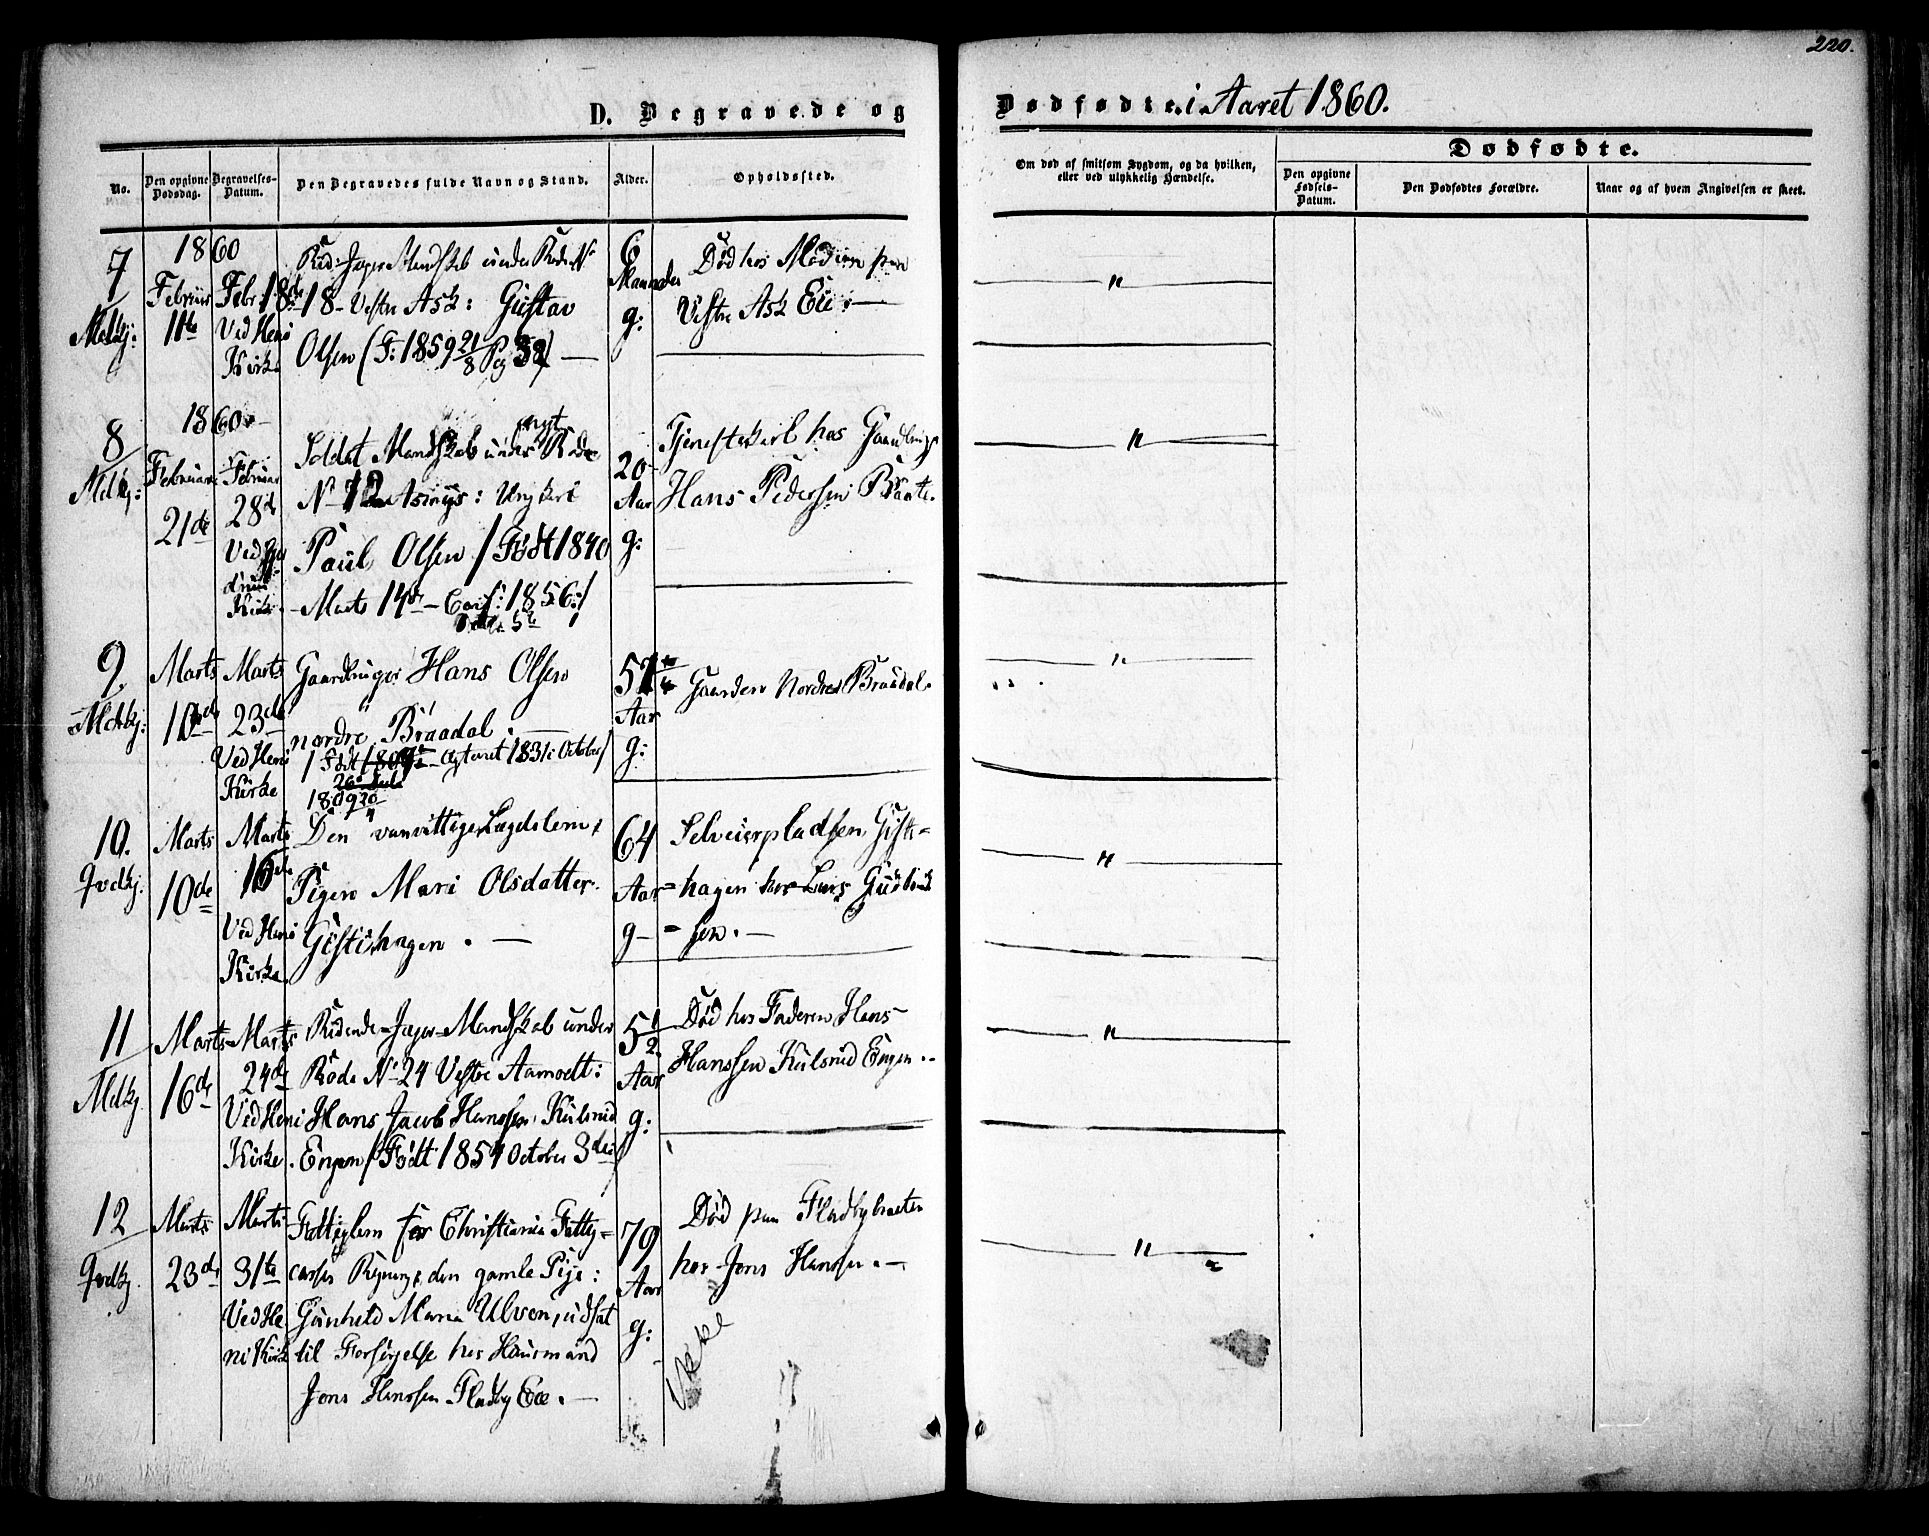 220.
D. Begravede og Dødfødte i Aaret 1860.
No.
Den opgivne Dødsdag.
Begravelses-Datum.
Den Begravedes fulde Navn og Stand.
Alder.
Opholdssted.
Om død af smitsom Sygdom, og da hvilken, eller ved ulykkelig Hændelse.
Dødfødte.
Den opgivne Fødsels-Datum.
Den Dødfødtes Forældre.
Naar og af hvem Angivelsen er skeet.
7
Mdkj:
1860
Februar
11te
Febr: 18de
Ved Heni
Kirke
Rid: Jæger Mandskab under Rode No
18 - Vestre Ask: Gustav
Olsen (F: 1859 21/8 Pag 38)
6
Maaneder
g:
Død hos Moderen paa
Vestre Ask Eie. —
"
8
Mdkj:
1860
Februar
21de
Februar
28de
Ved
Kirke.
Soldat Mandskab under Rode
No 12 Asmys: Ungkarl
Paul Olsen / Født 1840
- Marts 14de - Conf: 1856 /
20
Aar
g:
Tjenestekarl hos Gaardbruger
Hans Pedersen Braate.
"
9.
Mdkj:
Marts
10de
Marts
23de
Ved Heni
Kirke
Gaardbruger Hans Olsen
nordre Braadal.
/ Født 1809 - Copuleret 1831 i October /
1809 20/
51
Aar
g:
Gaarden Nordre Braadal.
"
10.
Qvdkj.
Marts
10de
Marts
16de
Ved Heni
Kirke.
Den vanvittige Lægdslem,
Pigen Mari Olsdatter
Gistihagen. —
64
Aar
g —
Selveierpladsen Gisti=
= hagen hos Lars Gulbrand
= sen. —
"
11
Mdkj.
Marts
16de
Marts
24de
Ved Heni
Kirke.
Ridende Jæger Mandskab under
Rode No 24 Vestre Aamodt:
Hans Jacob Hanssen Kulsrud
Engen / Født 1854 October 3die /
5 1/2
Aar
g:
Død hos Faderen Hans
Hanssen Kulsrud Engen. -
"
12
Qvdkj.
Marts
23de
Marts
31te
Ved He
ni Kirke
Fattiglem for Christiania Fattig=
casses Regning, den gamle Pige:
Gunhild Maria Ulven, udsat
til Forsørgelse hos Huusmand
Jons Hanssen Fladby Eie. —
79
Aar
g:
Død paa Fladbybraaten
hos Jons Hanssen. —
"